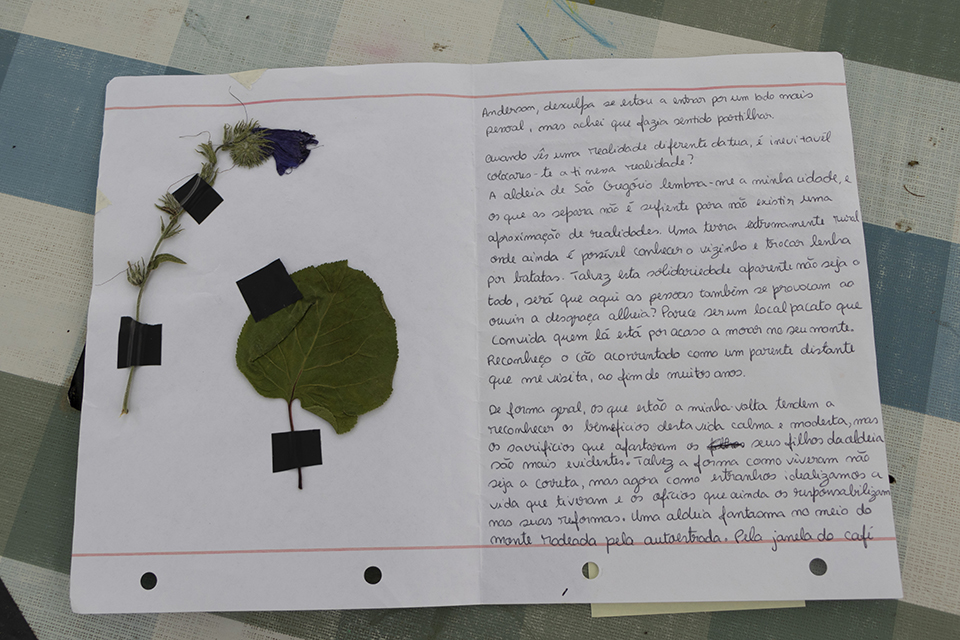 Anderson, desculpa se estou a entrar por um lado mais
pessoal, mas achei que fazia sentido partilhar
Quando vês uma realidade diferente da tua, é inevitavél
colocares-te a ti nessa realidade?
A aldeia de São Gregório lembra-me a minha cidade, e
os que as separa não é sufiente para não existir uma
aproximação de realidades. Uma terra extremamente rural
onde ainda é possível conhecer o vizinho e trocar lenha
por batatas. Talvez esta solidariedade aparente não seja o
todo, será que aqui as pessoas também se provocam ao
ouvir a desgraça alheia? Parece ser um local pacato que
convida quem lá está por acaso a morar no seu monte.
Reconheço o cão acorrentado como um parente distante
que me visita, ao fim de muitos anos.
De forma geral, os que estão a minha volta tendem a
reconhecer os benefícios desta vida calma e modesta, mas
os sacrifícios que afastaram os seus filhos da aldeia
são mais evidentes. Talvez a forma como viveram não
seja a correta, mas agora como estranhos idealizamos a
vida que tiveram e os ofícios que ainda os responsabilizam
nas suas reformas. Uma aldeia fantasma no meio do
monte rodeada pela autoestrada. Pela janela do café